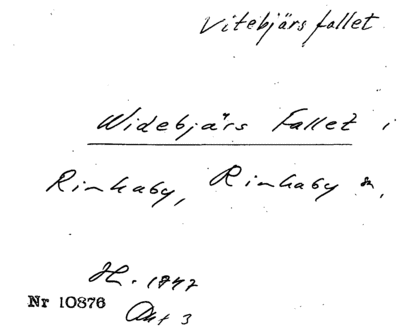 Vitebjärs fallet
Widebjärs Fallet i
Rinkaby, Rinkaby sn,
H. 1847
Nr 10876
Akt 3